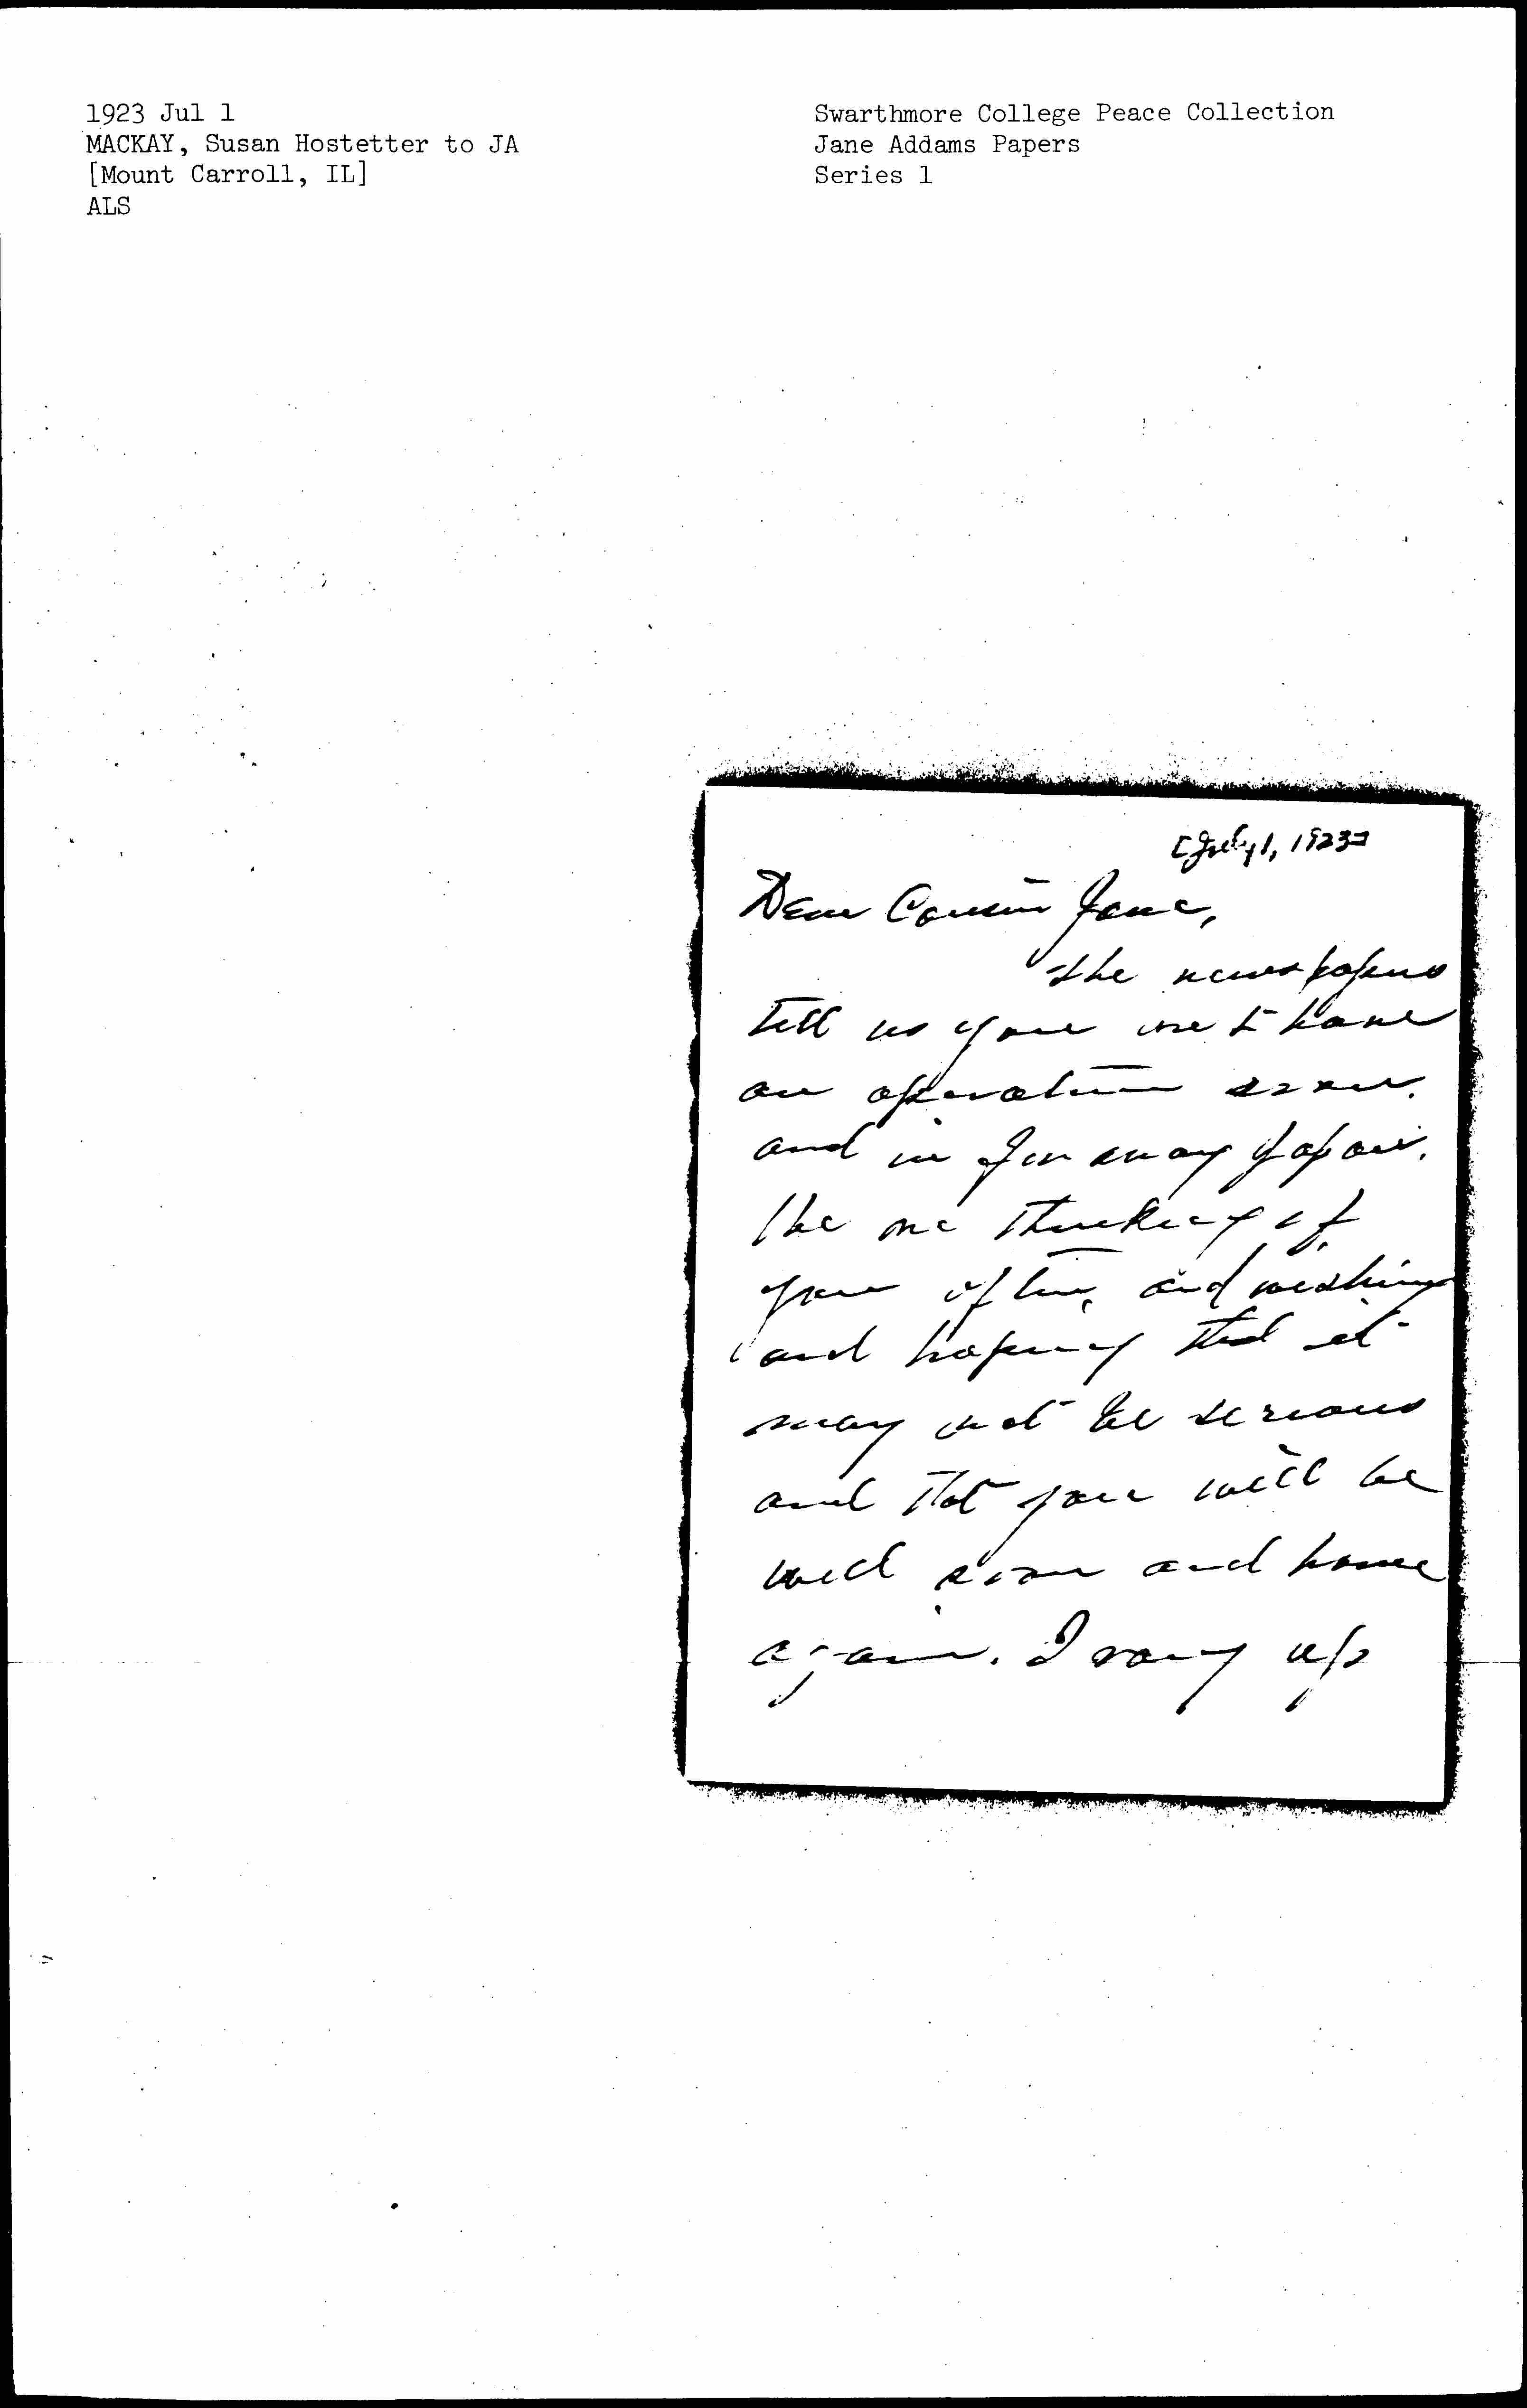 1923 Jul 1
MACKAY, Susan Hostetter to JA
[Mount Carroll, IL]
ALS
Swarthmore College Peace Collection
Jane Addams Papers
Series 1
[July 1, 1923]
Dear Cousin Jane,
the newspapers
tell us you are to have
an operation soon.
and in far away Japan.
We are thinking of
you often, and wishing
and hoping that it
may not be serious
and that you will be
well soon and home
again. I rang up